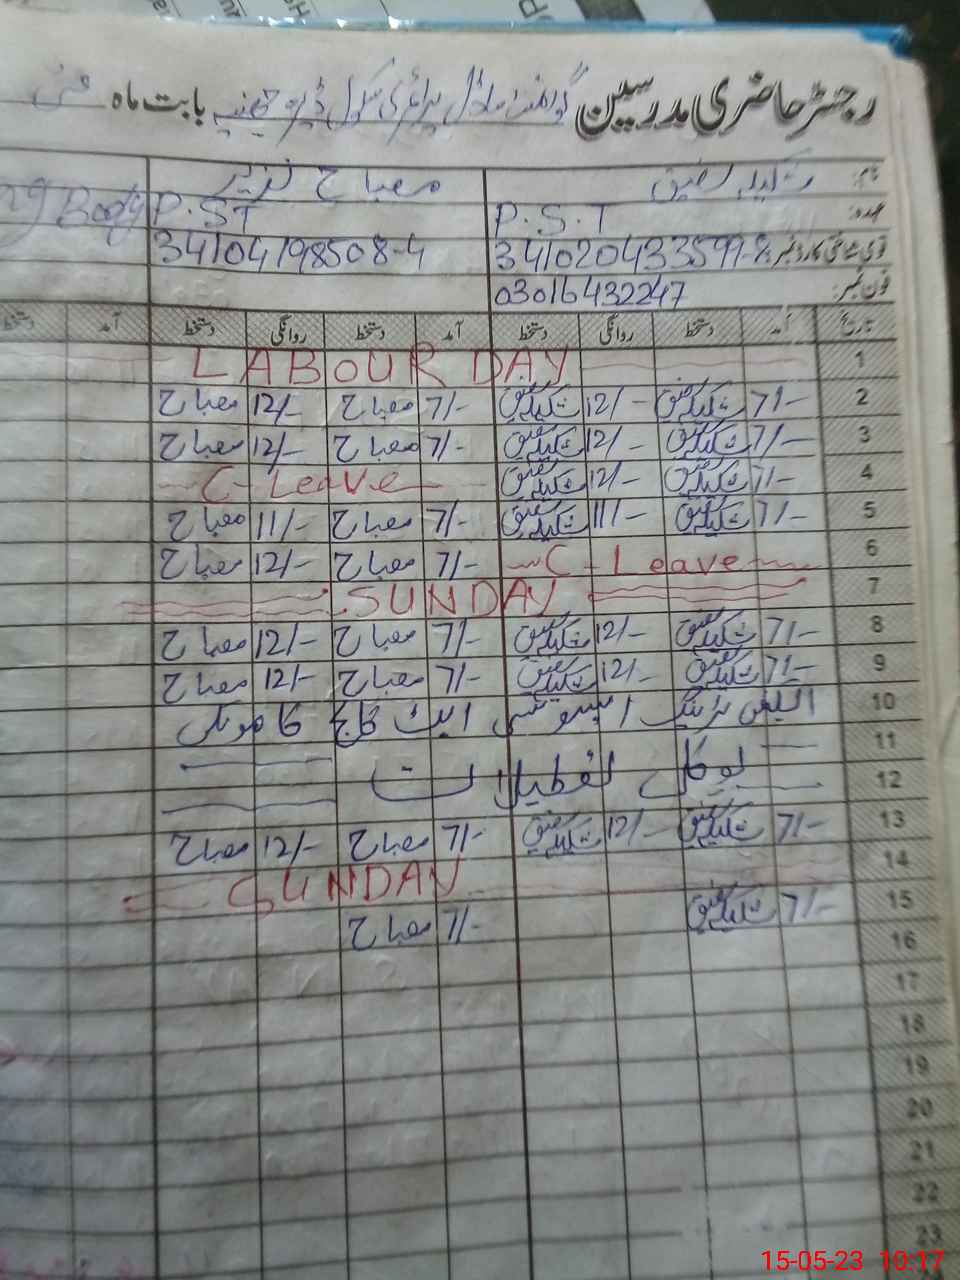 رجسٹر حاضری مدرسین گورنمنٹ ماڈل پرائمری سکول بابت ماہ مئی
نام: شکیلہ رفیق مصباح نذیر
عہدہ: P.S.T P.ST Body
قومی شناختی کارڈ نمبر: 34104198508-4
فون نمبر: 03016432247
تاریخ آمد دستخط روانگی دستخط آمد دستخط روانگی دستخط آمد دستخط
1 LABOUR DAY
2 7/- شکیلہ رفیق 12/- شکیلہ رفیق 7/- مصباح 12/- مصباح
3 7/- شکیلہ رفیق 12/- شکیلہ رفیق 7/- مصباح 12/- مصباح
4 7/- شکیلہ رفیق 12/- شکیلہ رفیق C-Leave
5 7/- شکیلہ رفیق 11/- شکیلہ رفیق 7/- مصباح 11/- مصباح
6 C-Leave 7/- مصباح 12/- مصباح
7 SUNDAY
8 7/- شکیلہ رفیق 12/- شکیلہ رفیق 7/- مصباح 12/- مصباح
9 7/- شکیلہ رفیق 12/- شکیلہ رفیق 7/- مصباح 12/- مصباح
10 الیکشن ٹریننگ ایٹ کالج کامونکی
11
12 لوکل تعطیلات
13 7/- شکیلہ رفیق 12/- شکیلہ رفیق 7/- مصباح 12/- مصباح
14 SUNDAY
15 7/- شکیلہ رفیق 7/- مصباح
16
17
18
19
20
21
22
23
15-05-23 10:17